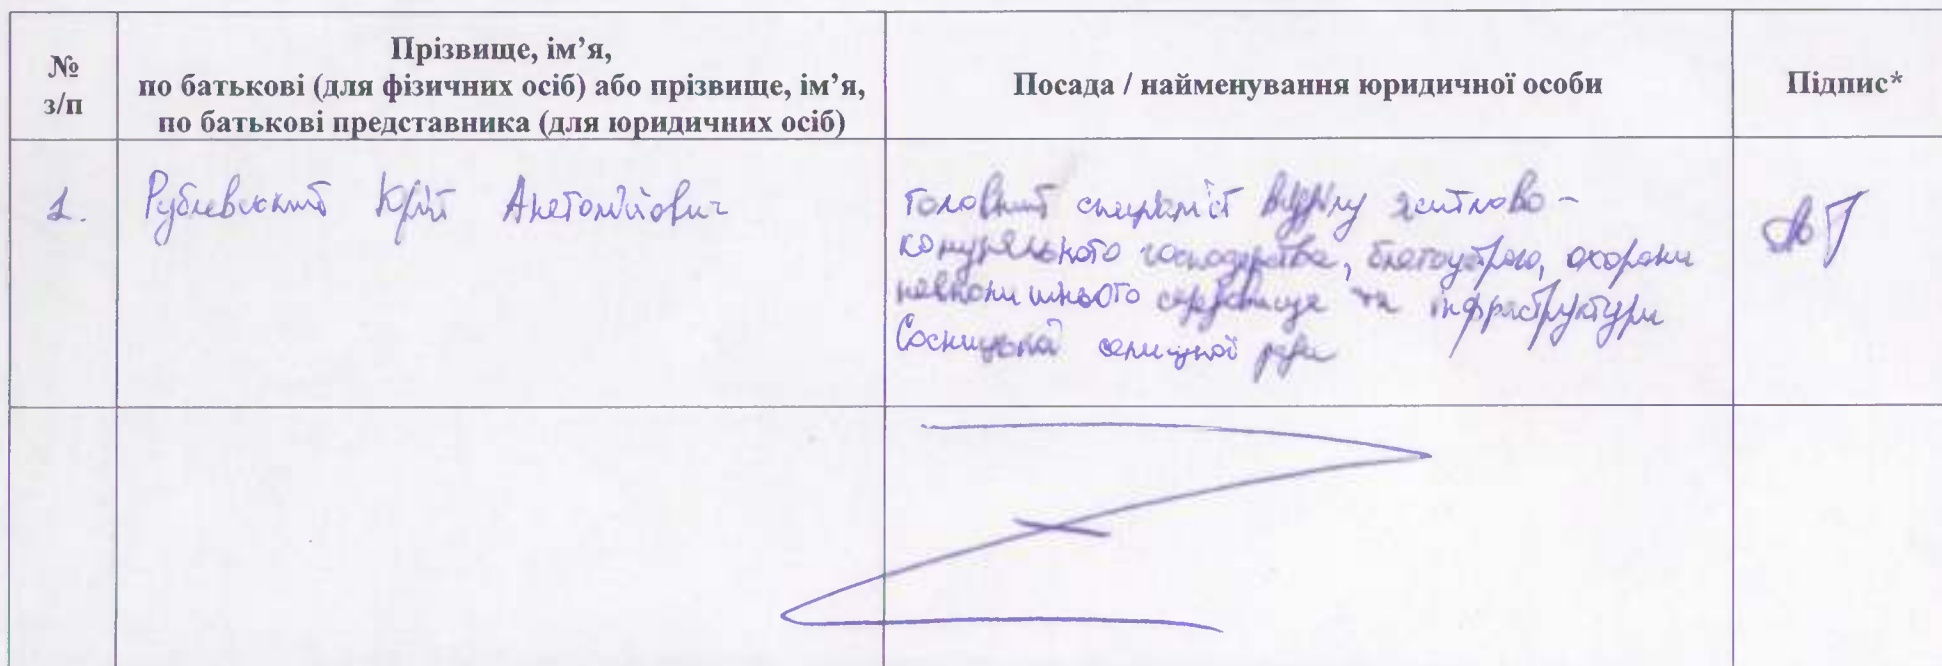 № з/п
Прізвище, ім’я,
по батькові (для фізичних осіб) або прізвище, ім’я,
по батькові представника (для юридичних осіб)
Посада / найменування юридичної особи
Підпис*
1.
Юрій Анатолійович
головний спеціаліст відділу житлово-
комунального господарства, благоустрою, охорони
навколишнього середовища та інфраструктури
Сосницької селищної ради